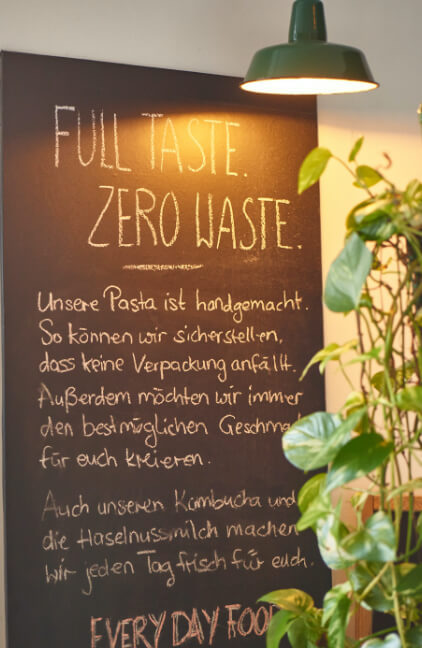 FULL TASTE.
ZERO WASTE.
Unsere Pasta ist handgemacht.
So können wir sicherstellen,
dass keine Verpackung anfällt.
Außerdem möchten wir immer
den bestmöglichen Geschmack
für euch kreieren.
Auch unseren Kombucha und
die Haselnussmilch machen
wir jeden Tag frisch für euch.
EVERY DAY FOOD